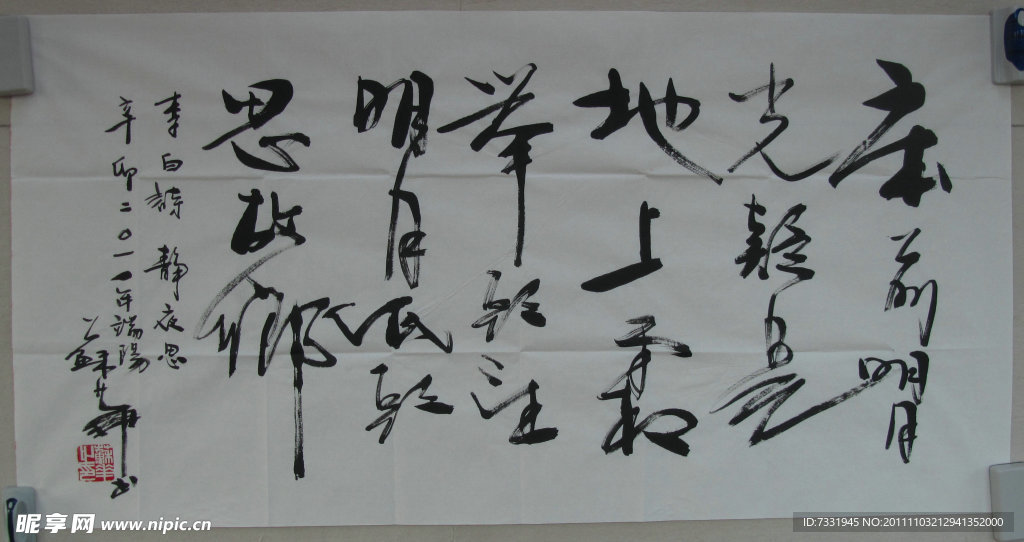 床前明月
光疑是
地上霜
举頭望
明月低頭
思故鄉
李白詩 靜夜思
辛卯二〇一一年端陽
蘇 书
昵享网 www.nipic.cn
ID:7331945 NO:20111103212941352000